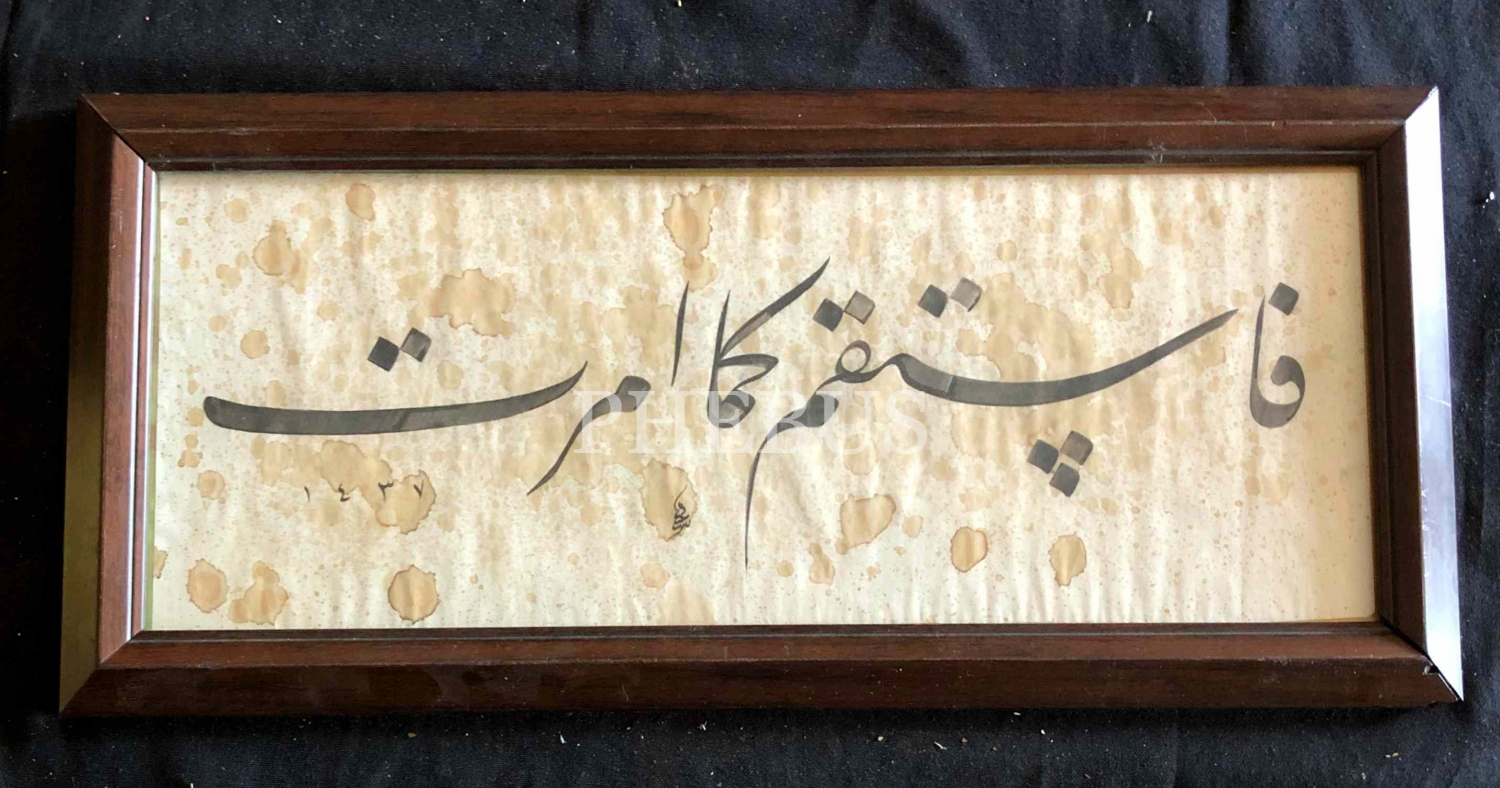 فاستقم كما امرت
١٤٣٧
PHEBUS